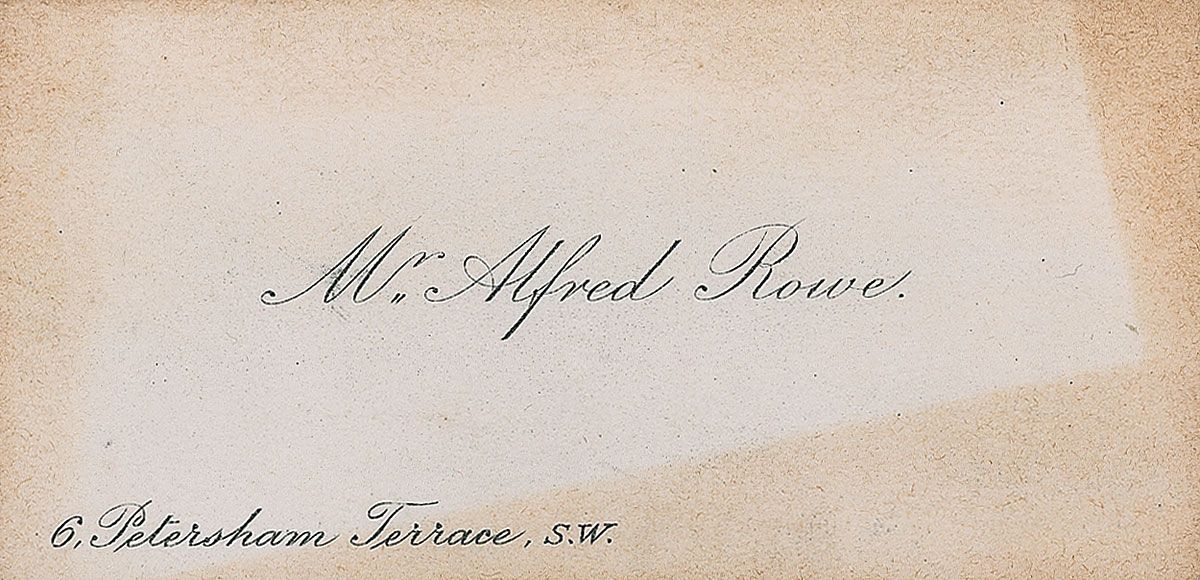 Mr. Alfred Rowe.
6, Petersham Terrace, S.W.